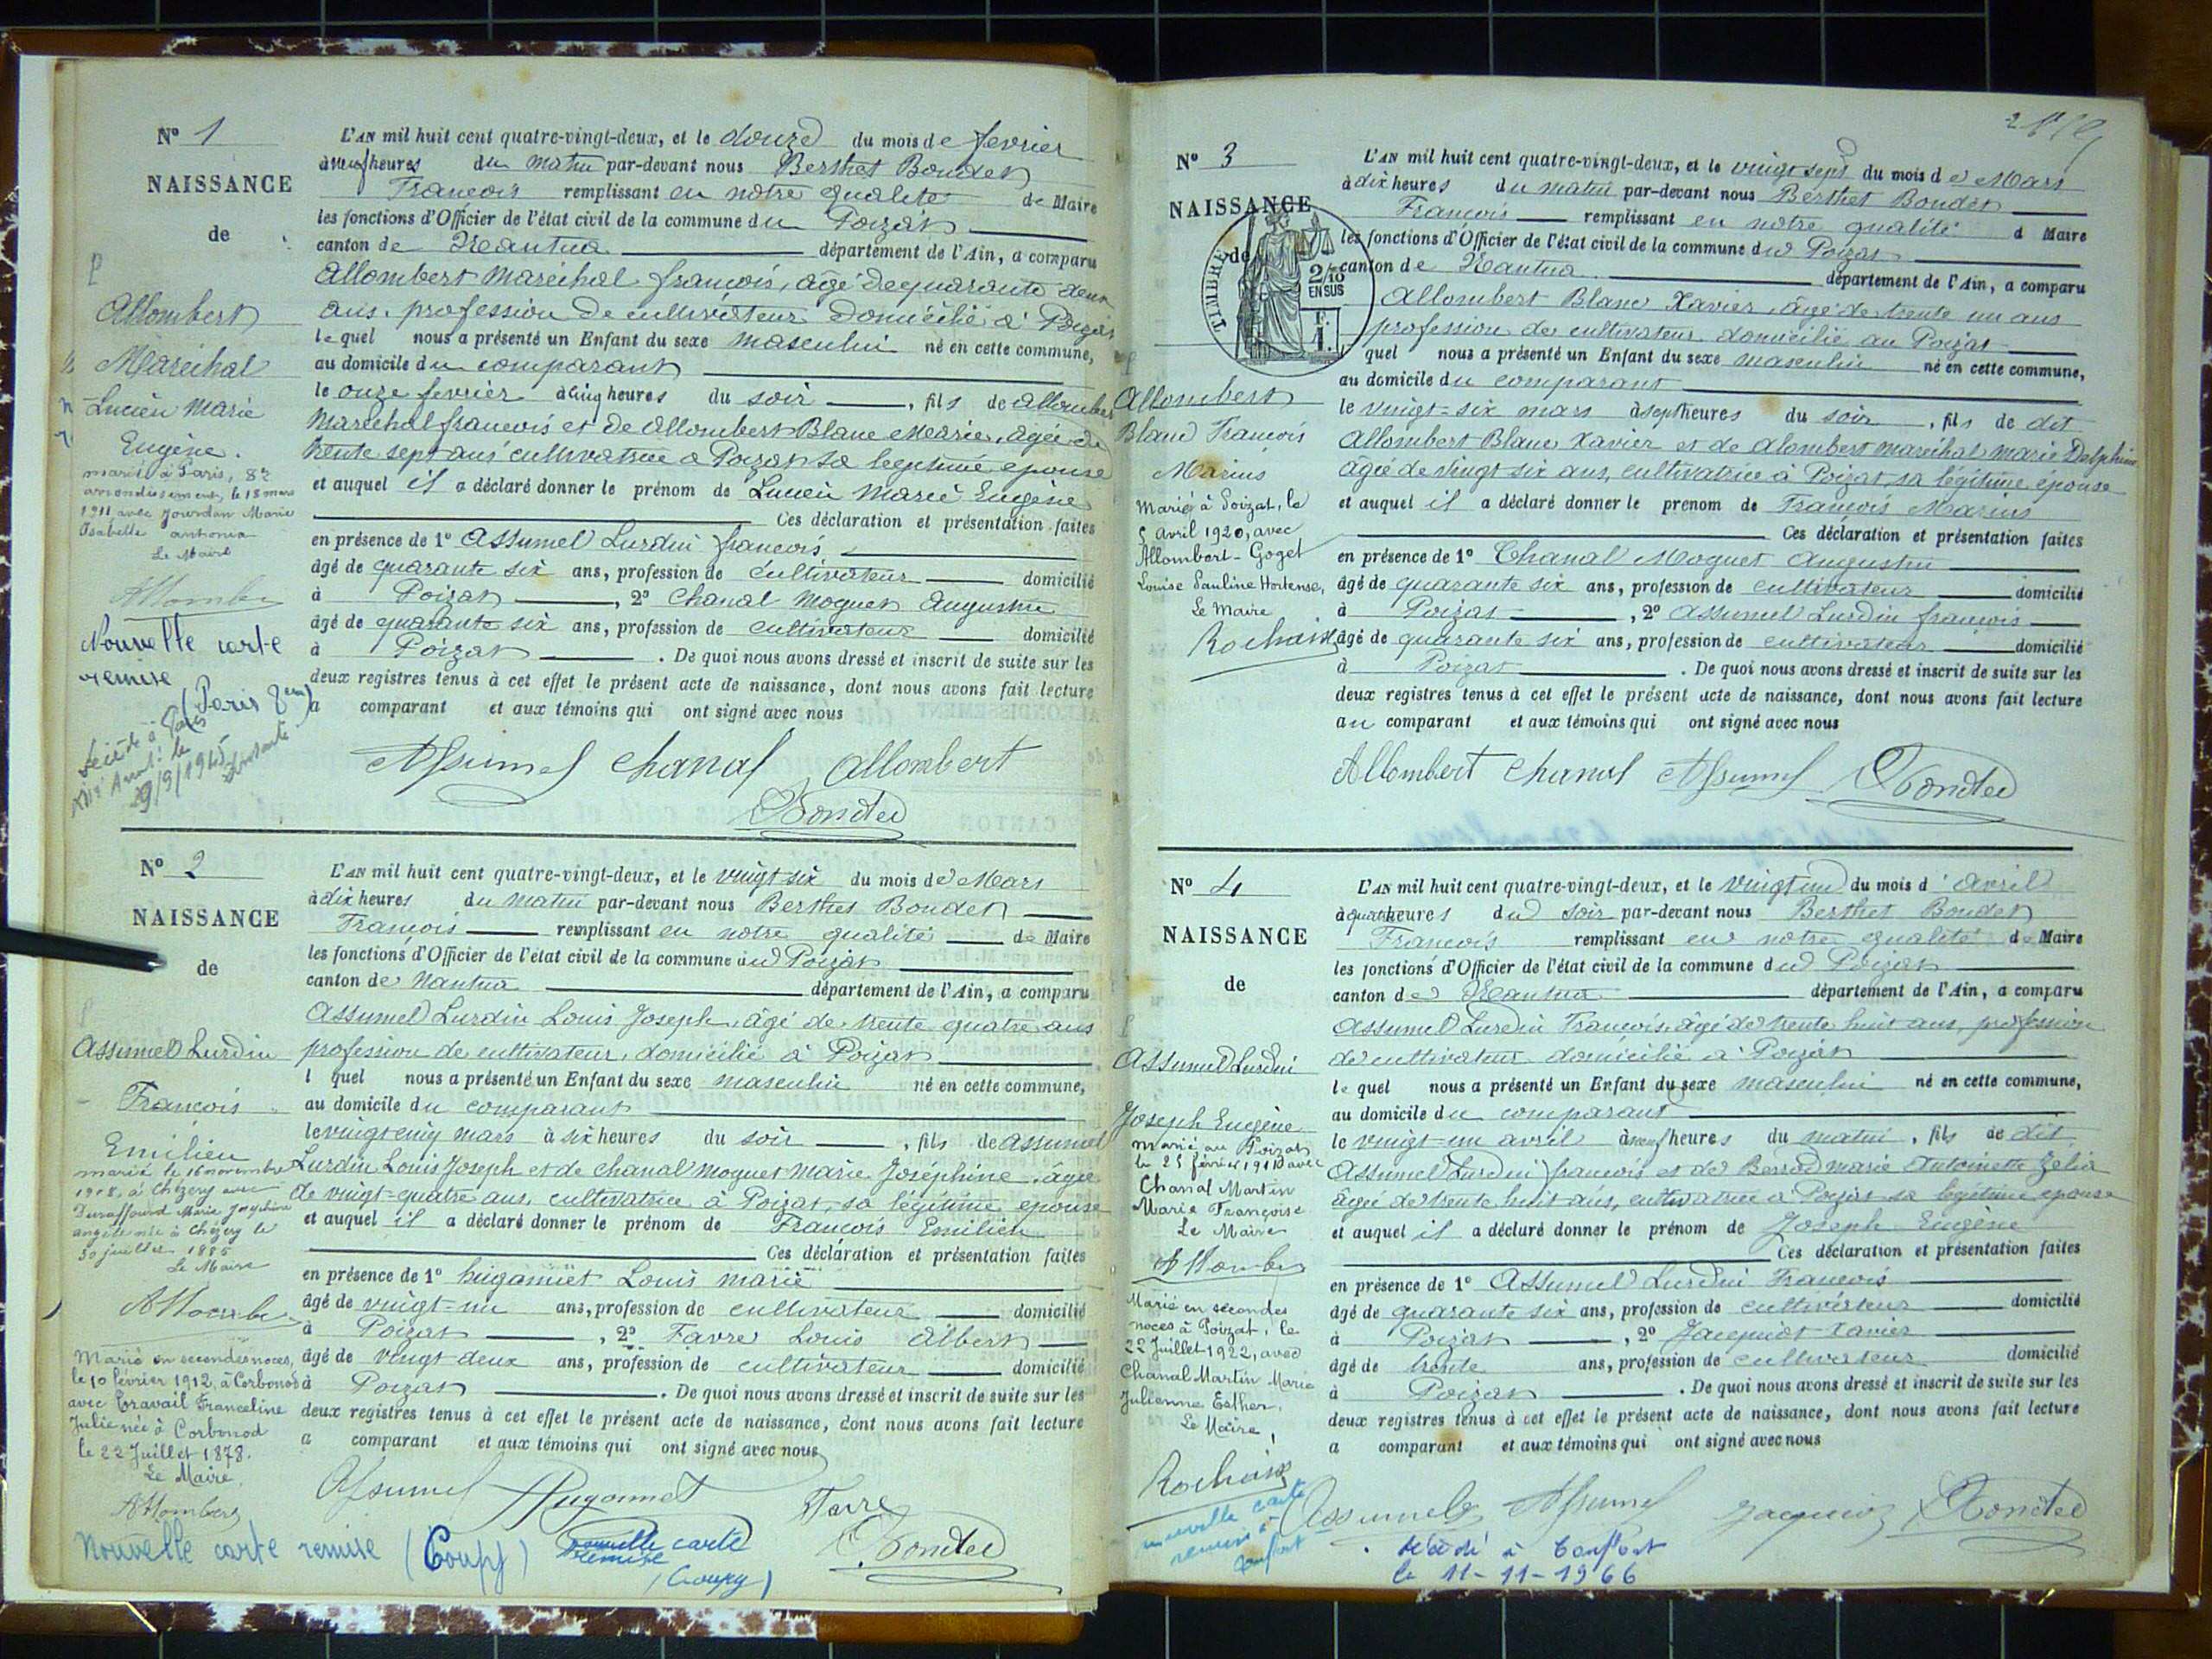 Nº 1
NAISSANCE
de
Allombert
Maréchal
Lucien Marie
Eugène.
marié à Paris, 8e
arrondissement, le 18 mars
1911 avec Jourdan Marie
Isabelle antonia
Le Maire
Allombe
Nouvelle carte
remise
(Paris
décédé à Paris
29/9/1945
L'AN mil huit cent quatre-vingt-deux, et le douze du mois de fevrier
à neuf heures du matin par-devant nous Berthet Bondet
François remplissant en notre qualité de Maire
les fonctions d'Officier de l'état civil de la commune du Poizat
canton de Nantua département de l'Ain, a comparu
Allombert Maréchal françois, âgé de quarante deux
ans, profession de cultivateur domicilié à Poizat
lequel nous a présenté un Enfant du sexe masculin né en cette commune,
au domicile du comparant
le onze fevrier à cinq heures du soir, fils de allombert
Maréchal françois et de Allombert Blanc Marie, âgée de
trente sept ans cultivatrice a Poizat sa legitime epouse
et auquel il a déclaré donner le prénom de Lucien Marie Eugène
Ces déclaration et présentation faites
en présence de 1º Assumel Lurdin françois
âgé de quarante six ans, profession de cultivateur domicilié
à Poizat, 2º Chanal Moquet Augustin
âgé de quarante six ans, profession de cultivateur domicilié
à Poizat. De quoi nous avons dressé et inscrit de suite sur les
deux registres tenus à cet effet le présent acte de naissance, dont nous avons fait lecture
a comparant et aux témoins qui ont signé avec nous
Assumel Chanal Allombert
Bondet
Nº 2
NAISSANCE
de
Assumel Lurdin
François
Emilien
marié le 16 novembre
1908, à Chézery avec
Duraffourd Marie Joséphine
angèle née à Chézery le
30 juillet 1885
Le Maire
Allombe
Marié en secondes noces,
le 10 février 1912, à Corbonod
avec Travail Franceline
Julie née à Corbonod
le 22 Juillet 1878.
Le Maire,
Allombert
Nouvelle carte remise (Coupy)
L'AN mil huit cent quatre-vingt-deux, et le vingt six du mois de Mars
à dix heures du matin par-devant nous Berthet Bondet
François remplissant en notre qualité de Maire
les fonctions d'Officier de l'état civil de la commune du Poizat
canton de Nantua département de l'Ain, a comparu
Assumel Lurdin Louis Joseph, âgé de trente quatre ans
profession de cultivateur, domicilié à Poizat
l quel nous a présenté un Enfant du sexe masculin né en cette commune,
au domicile du comparant
le vingt cinq mars à six heures du soir, fils de assumel
Lurdin Louis Joseph et de chanal moquet Marie Joséphine, âgée
de vingt-quatre ans, cultivatrice à Poizat, sa légitime epouse
et auquel il a déclaré donner le prénom de François Emilien
Ces déclaration et présentation faites
en présence de 1º hugonnet Louis marie
âgé de vingt-un ans, profession de cultivateur domicilié
à Poizat, 2º Favre Louis Albert
âgé de vingt deux ans, profession de cultivateur domicilié
à Poizat. De quoi nous avons dressé et inscrit de suite sur les
deux registres tenus à cet effet le présent acte de naissance, dont nous avons fait lecture
a comparant et aux témoins qui ont signé avec nous
Assumel Hugonnet Favre
Bondet
nouvelle carte
remise
(Coupy)
Nº 3
NAISSANCE
de
TIMBRE
2/10
EN SUS
F.
1.
Allombert
Blanc François
Marius
Marié à Poizat, le
5 Avril 1920, avec
Allombert-Goget
Louise Pauline Hortense,
Le Maire
Rochaix
L'AN mil huit cent quatre-vingt-deux, et le vingt sept du mois de Mars
à dix heures du matin par-devant nous Berthet Bondet
François remplissant en notre qualité d Maire
les fonctions d'Officier de l'état civil de la commune du Poizat
canton de Nantua département de l'Ain, a comparu
Allombert Blanc Xavier, âgé de trente un ans
profession de cultivateur domicilié au Poizat
quel nous a présenté un Enfant du sexe masculin né en cette commune,
au domicile du comparant
le vingt-six mars à sept heures du soir, fils de dit
Allombert Blanc Xavier et de alombert maréchal marie Delphine
âgée de vingt six ans, cultivatrice à Poizat, sa légitime épouse
et auquel il a déclaré donner le prenom de François Marius
Ces déclaration et présentation faites
en présence de 1º Chanal Moquet Augustin
âgé de quarante six ans, profession de cultivateur domicilié
à Poizat, 2º Assumel Lurdin françois
âgé de quarante six ans, profession de cultivateur domicilié
à Poizat. De quoi nous avons dressé et inscrit de suite sur les
deux registres tenus à cet effet le présent acte de naissance, dont nous avons fait lecture
au comparant et aux témoins qui ont signé avec nous
Allombert Chanal Assumel Bondet
Nº 4
NAISSANCE
de
Assumel Lurdin
Joseph Eugène
marié au Poizat
le 25 février 1911 avec
Chanal Martin
Marie Françoise
Le Maire
Allombe
Marié en secondes
noces à Poizat, le
22 Juillet 1922, avec
Chanal Martin Marie
Julienne Esther,
Le Maire,
Rochaix
nouvelle carte
remise à
Confort
L'AN mil huit cent quatre-vingt-deux, et le vingt un du mois d'avril
à quatre heures du soir par-devant nous Berthet Bondet
François remplissant en notre qualité de Maire
les fonctions d'Officier de l'état civil de la commune du Poizat
canton de Nantua département de l'Ain, a comparu
Assumel Lurdin François, âgé de trente huit ans, profession
de cultivateur domicilié à Poizat
lequel nous a présenté un Enfant du sexe masculin né en cette commune,
au domicile du comparant
le vingt-un avril à neuf heures du matin, fils de dit
Assumel Lurdin françois et de Berrod marie Antoinette Zelia
âgée de trente huit ans, cultivatrice a Poizat sa légitime epouse
et auquel il a déclaré donner le prénom de Joseph Eugène
Ces déclaration et présentation faites
en présence de 1º Assumel Lurdin François
âgé de quarante six ans, profession de cultivateur domicilié
à Poizat, 2º Jacquiot Xavier
âgé de trente ans, profession de cultivateur domicilié
à Poizat. De quoi nous avons dressé et inscrit de suite sur les
deux registres tenus à cet effet le présent acte de naissance, dont nous avons fait lecture
a comparant et aux témoins qui ont signé avec nous
Assumel Assumel Jacquiot Bondet
décédé à Confort
le 11-11-1966